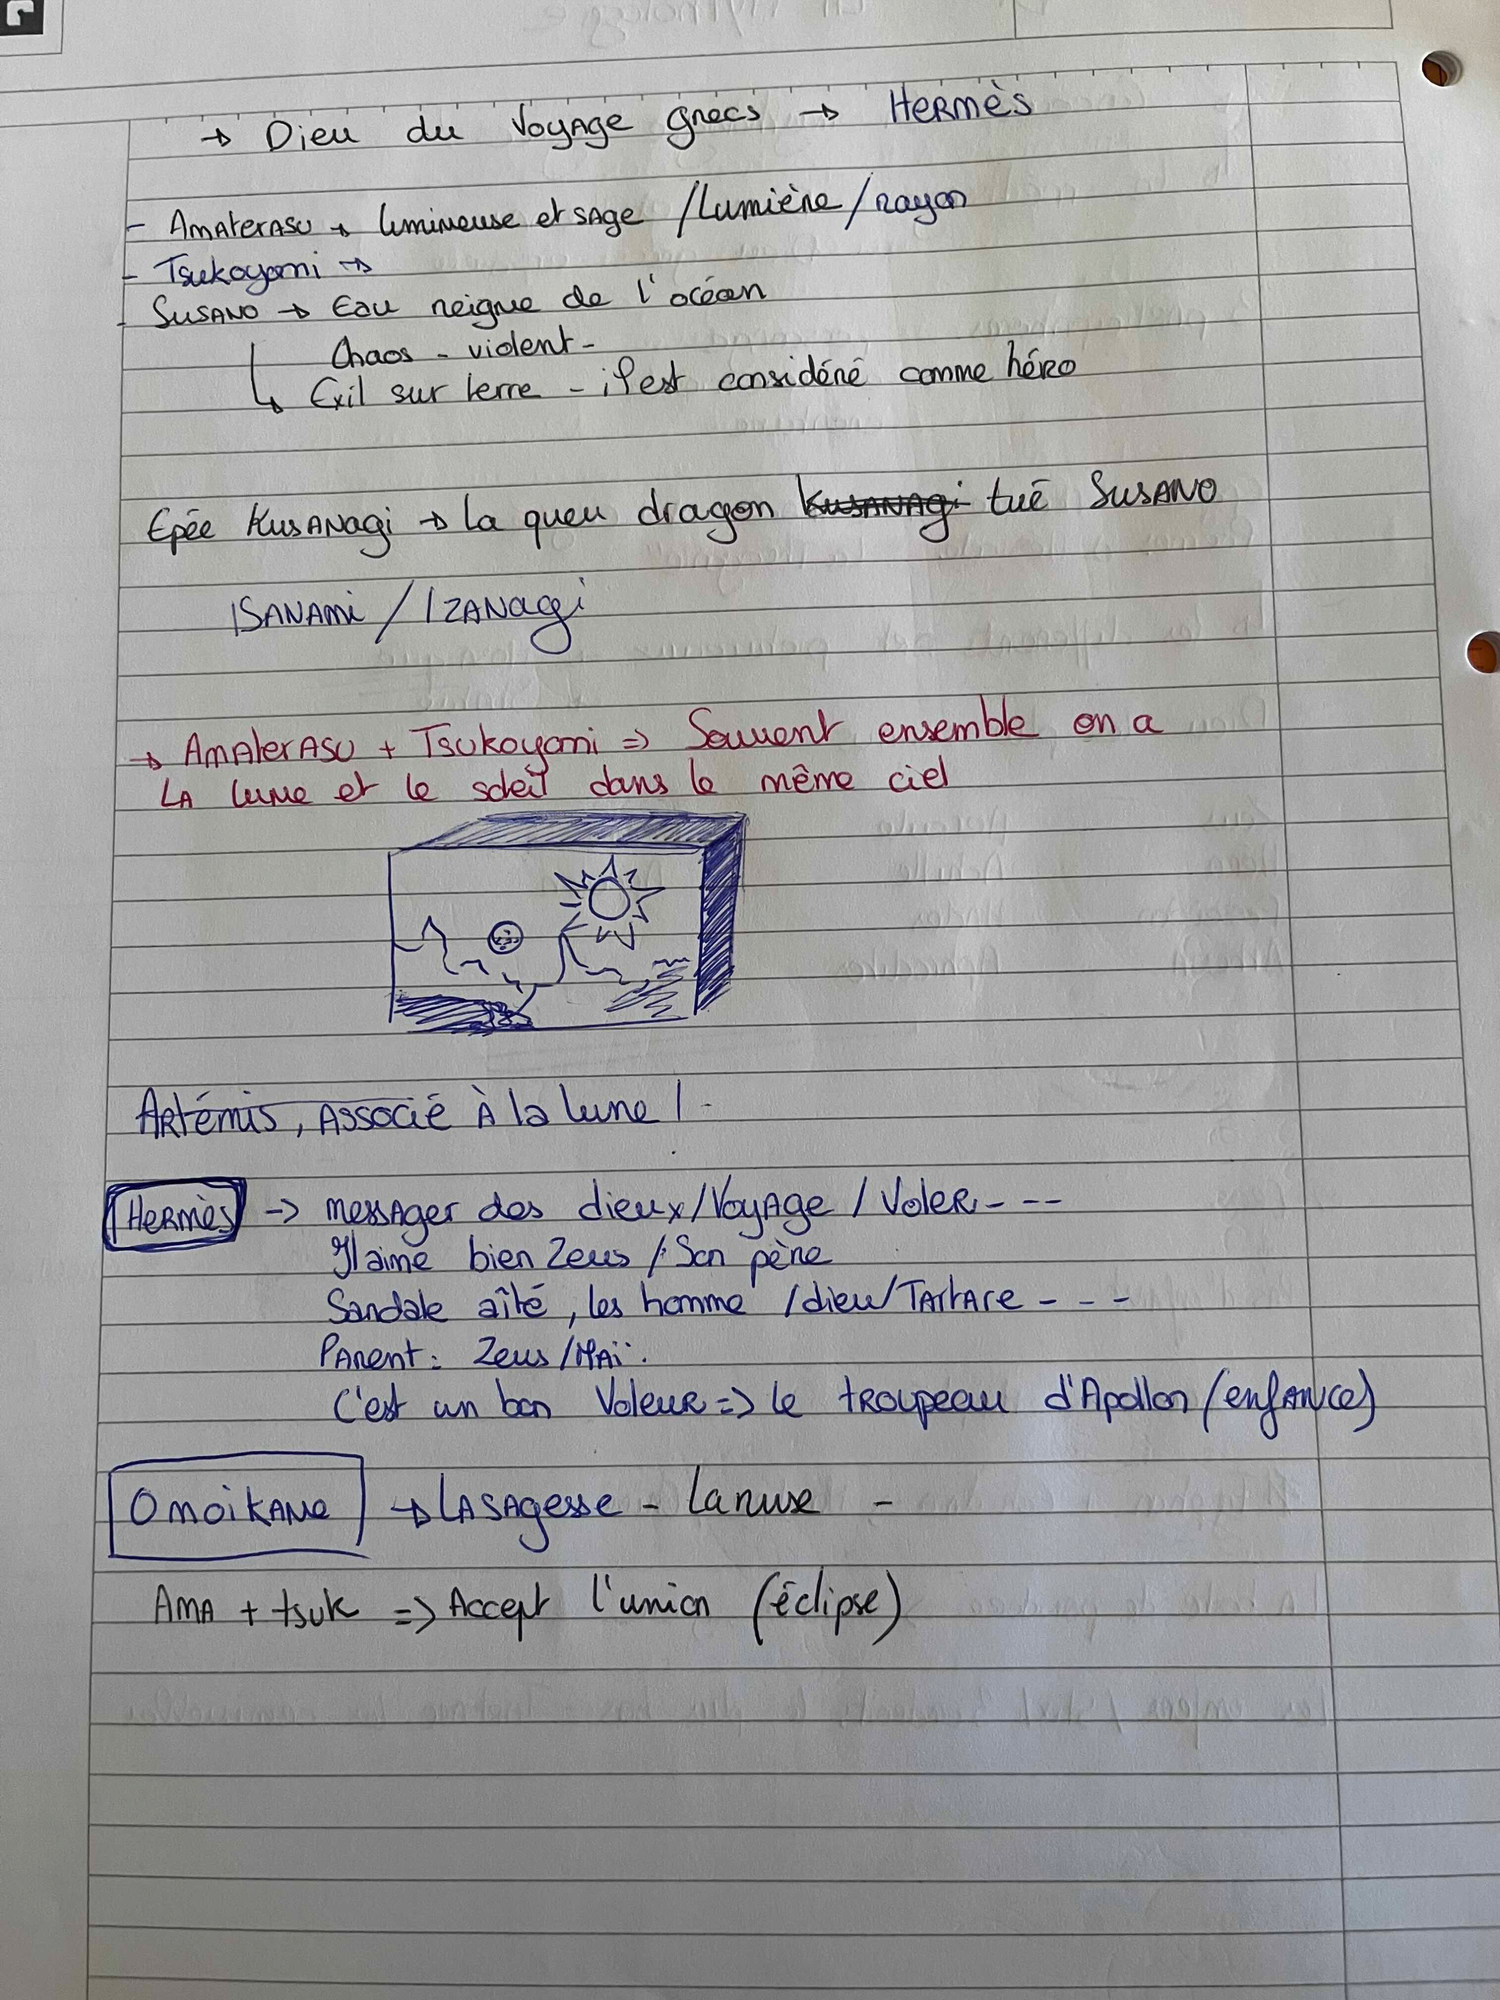 → Dieu du Voyage grecs → Hermès
- Amaterasu → lumineuse et sage / Lumière / rayon
- Tsukoyomi →
- Susano → Eau reigne de l'océan
Chaos - violent -
↳ Exil sur terre - il est considéré comme héro
Epée Kusanagi → La queu dragon Kusanagi tué Susano
Isanami / Izanagi
→ Amaterasu + Tsukoyomi => Souvent ensemble on a
La lune et le soleil dans le même ciel
Artémis, Associé à la lune !
Hermès -> messager des dieux / Voyage / Voler - - -
Il aime bien Zeus / Son père
Sandale aîlé, les homme / dieu / Tartare - - -
Parent : Zeus / Maï.
C'est un bon Voleur => le troupeau d'Apollon (enfance)
Omoikane → La sagesse - La ruse -
Ama + tsuk => Accept l'union (éclipse)